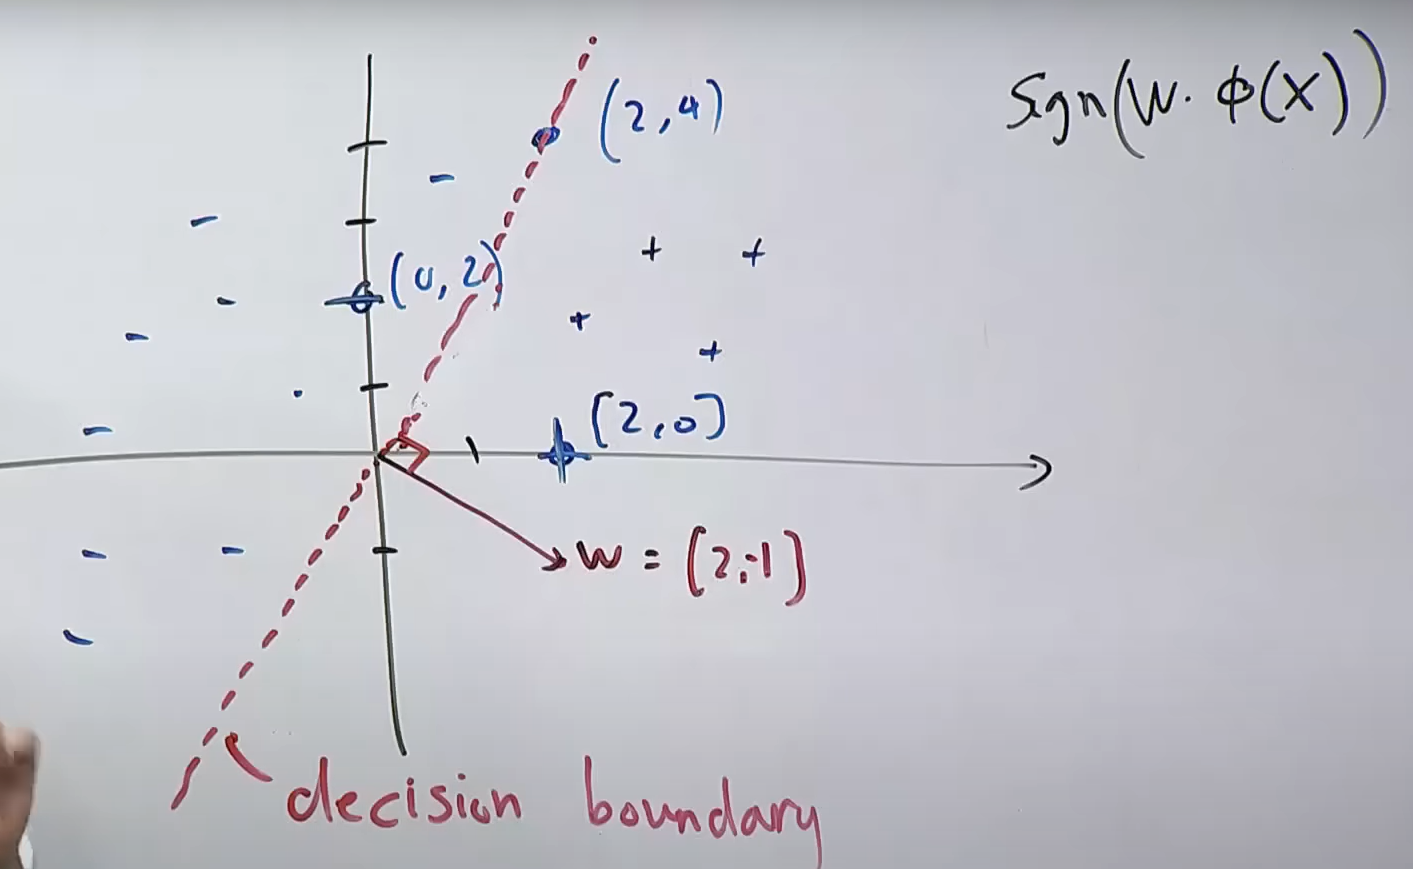 Sign(W· φ(X))
(2,4)
(0,2)
[2,0]
W = [2,-1]
decision boundary